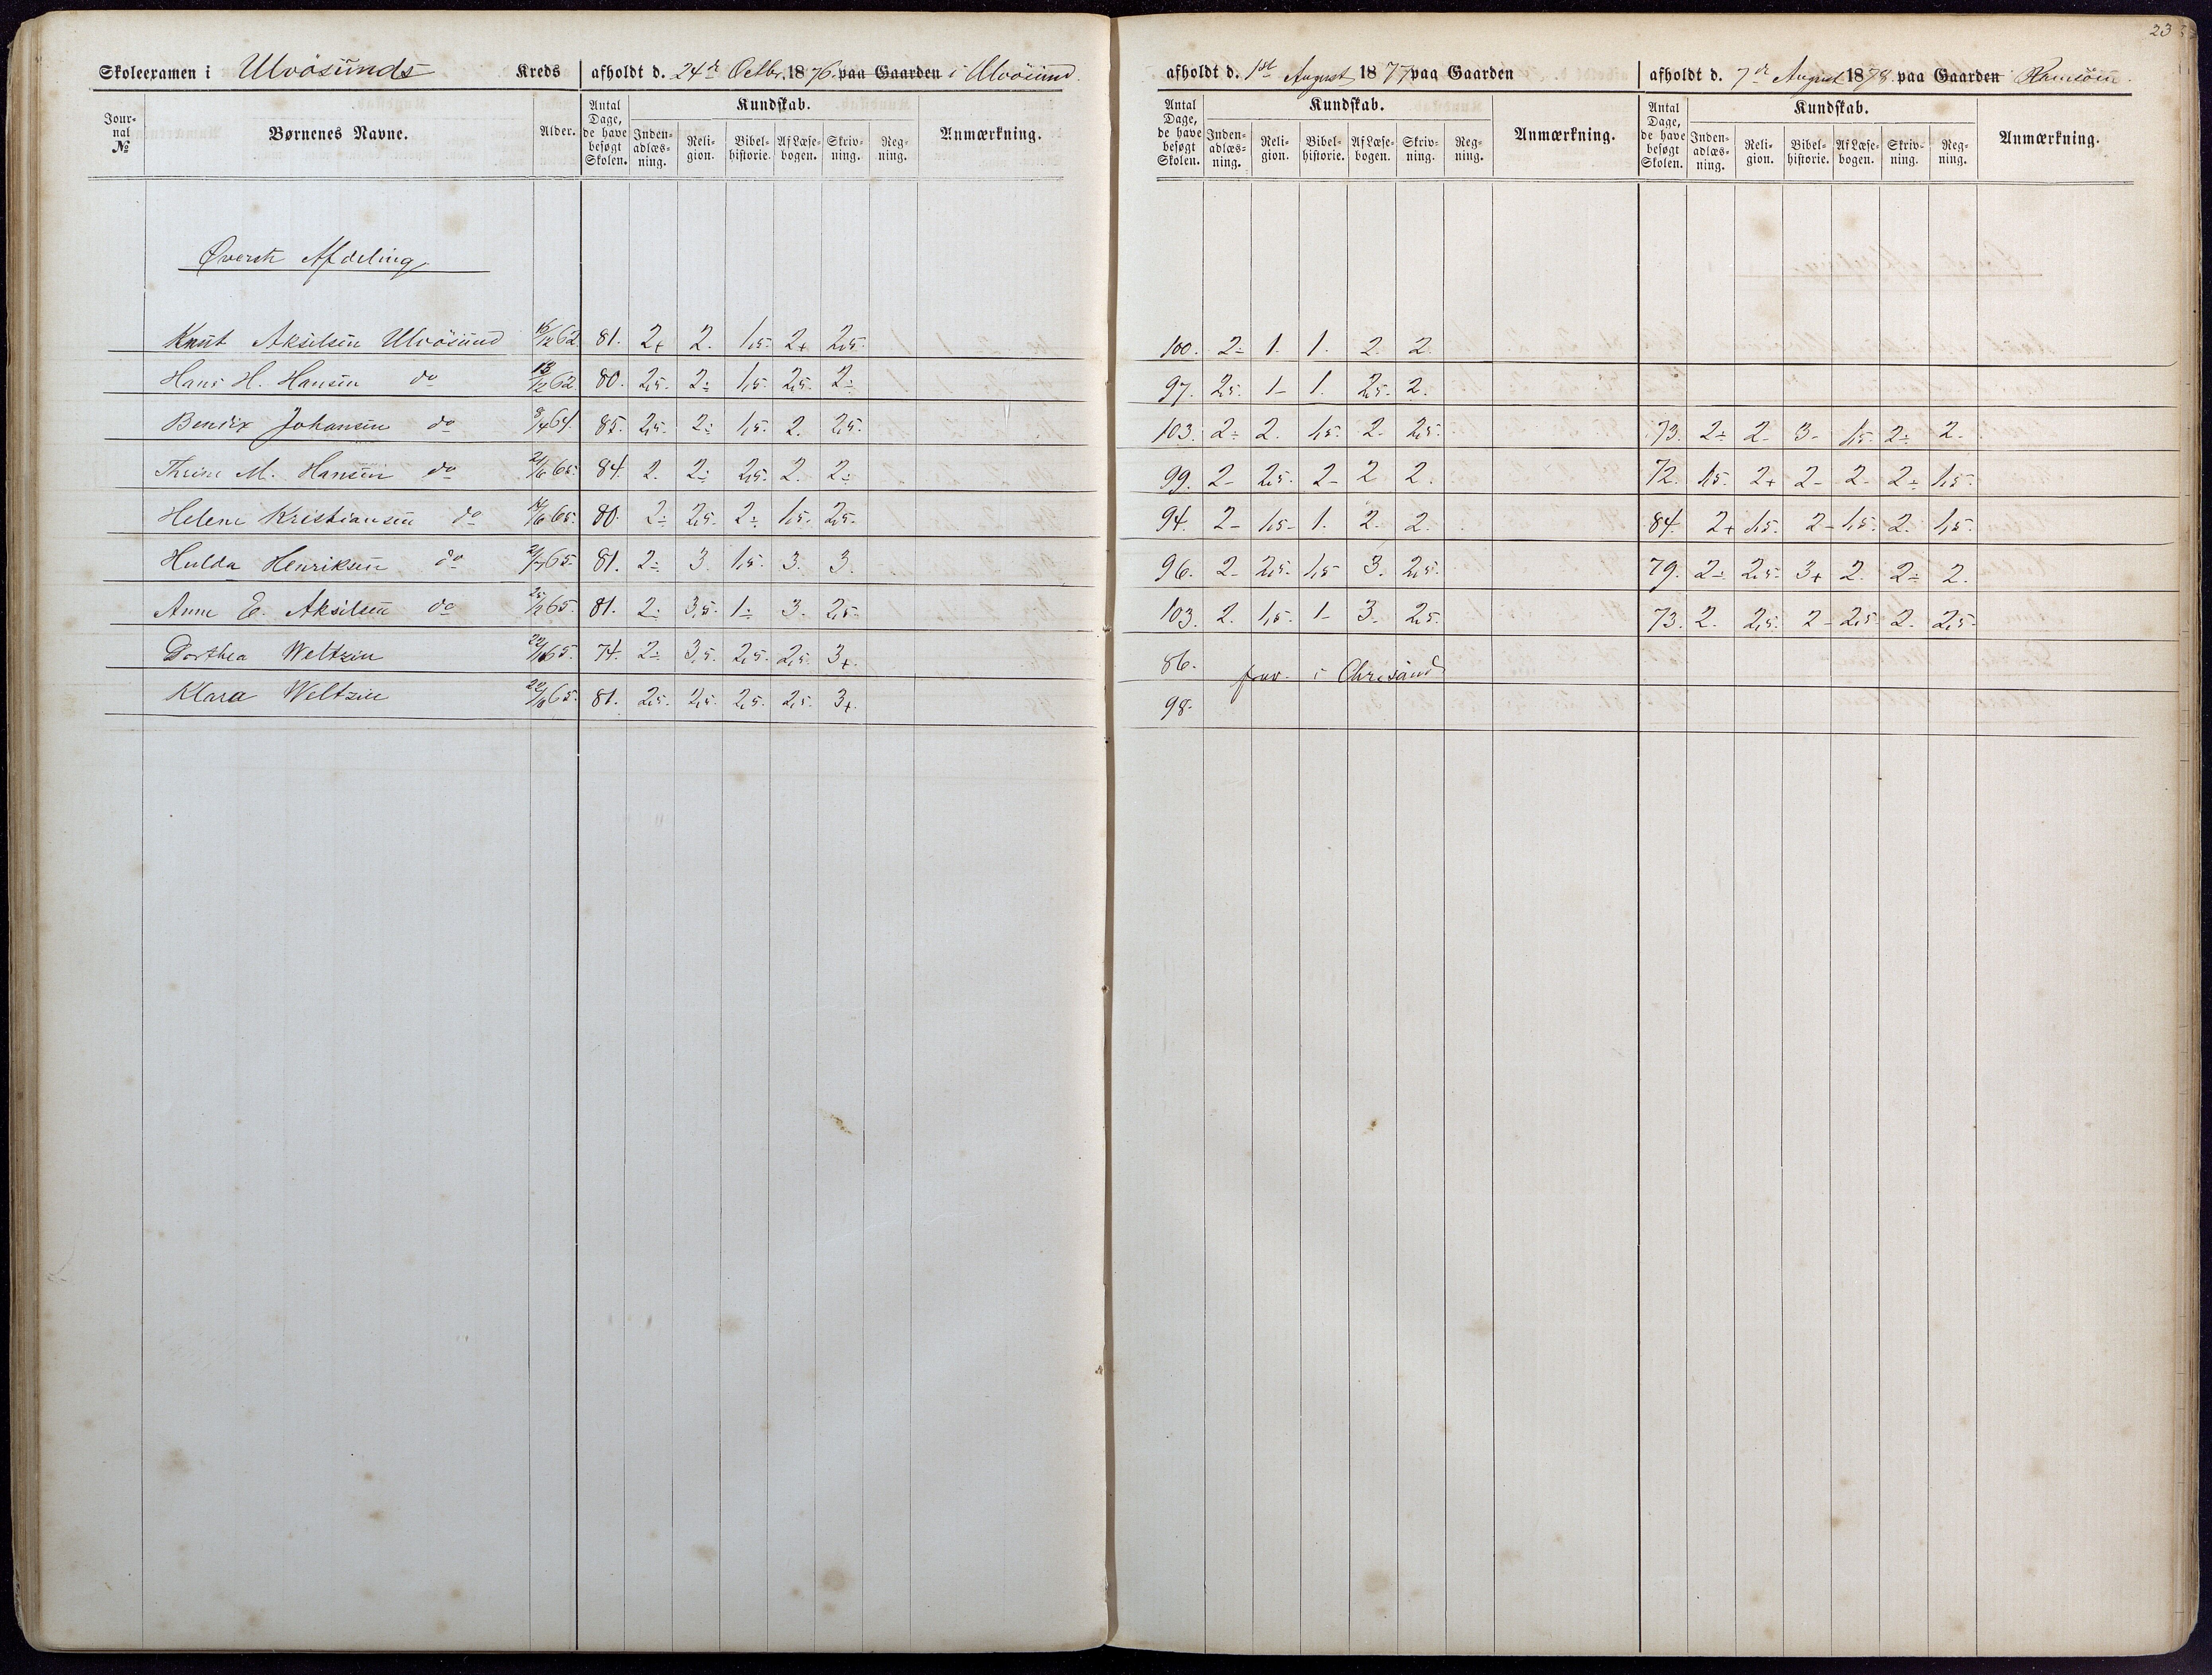 23
Skoleexamen i Ulvösunds Kreds afholdt d. 24de Octbr. 1876 paa Gaarden i Ulvösund.
Jour-
nal
№
Børnenes Navne.
Alder.
Antal
Dage,
de have
besøgt
Skolen.
Kundskab.
Inden-
adlæs-
ning.
Reli-
gion.
Bibel-
historie.
Af Læse-
bogen.
Skriv-
ning.
Reg-
ning.
Anmærkning.
Øverste Afdeling
Knut Akselsen Ulvösund 62. 81. 2+ 2. 1,5. 2+ 2,5.
Hans H. Hansen do 13/12 62. 80. 2,5. 2÷ 1,5. 2,5. 2÷
Bendix Johansen do 8/4 64. 85. 2,5. 2÷ 1,5. 2. 2,5.
Thrine M. Hansen do 65. 84. 2. 2÷ 2,5. 2. 2÷
Helene Kristiansen do 65. 80. 2÷ 2,5. 2÷ 1,5. 2,5.
Hulda Henriksen do 65. 81. 2÷ 3. 1,5. 3. 3.
Anne E. Akselsen do 65. 81. 2÷ 3,5. 1÷ 3. 2,5.
Dorthea Weltzin 65. 74. 2÷ 3,5. 2,5. 2,5. 3+.
Klara Weltzin 65. 81. 2,5. 2,5. 2,5. 2,5. 3+.
afholdt d. 1st August 1877 paa Gaarden
Antal
Dage,
de have
besøgt
Skolen.
Kundskab.
Inden-
adlæs-
ning.
Reli-
gion.
Bibel-
historie.
Af Læse-
bogen.
Skriv-
ning.
Reg-
ning.
Anmærkning.
100. 2÷ 1. 1. 2. 2.
97. 2,5. 1- 1. 2,5. 2.
103. 2÷ 2. 1,5. 2. 2,5.
99. 2- 2,5. 2- 2 2.
94. 2- 1,5- 1. 2. 2.
96. 2- 2,5. 1,5 3. 2,5.
103. 2. 1,5. 1- 3. 2,5.
86. frav. i Chrisand
98.
afholdt d. 7de August 1878 paa Gaarden Ramsöen
Antal
Dage,
de have
besøgt
Skolen.
Kundskab.
Inden-
adlæs-
ning.
Reli-
gion.
Bibel-
historie.
Af Læse-
bogen.
Skriv-
ning.
Reg-
ning.
Anmærkning.
73. 2÷ 2- 3- 1,5. 2÷ 2-
72. 1,5. 2+ 2- 2- 2÷ 1,5-
84. 2+ 1,5. 2- 1,5. 2. 1,5-
79. 2÷ 2,5. 3+ 2. 2÷ 2.
73. 2. 2,5. 2- 2,5. 2. 2,5-